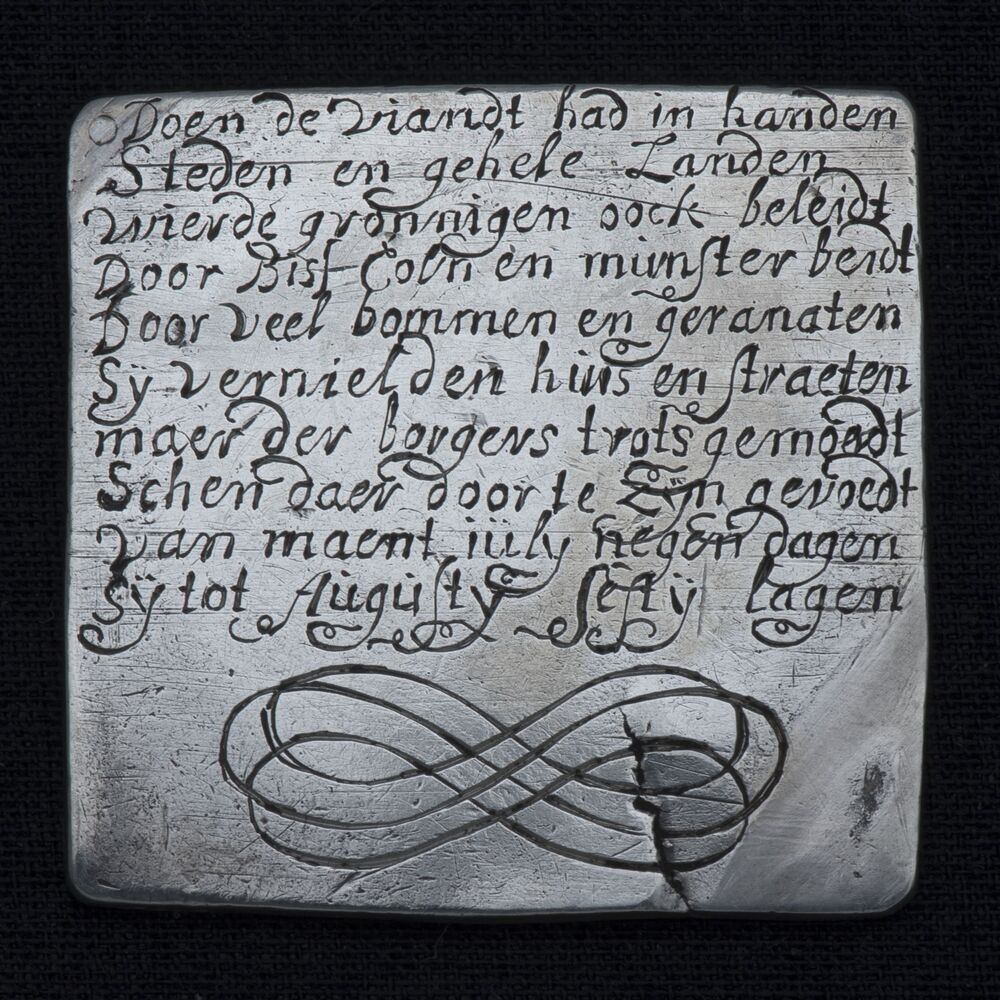 Doen de Viandt had in handen
Steden en gehele Landen
Wierde gronnigen oock beleidt
Door Bisf Coln en munster beidt
Door veel bommen en geranaten
Sÿ vernielden huis en straeten
maer der borgers trots gemoedt
Schen daer door te Zÿn gevoedt
Van maent iüly negen dagen
Sÿ tot Augusty seftÿ lagen